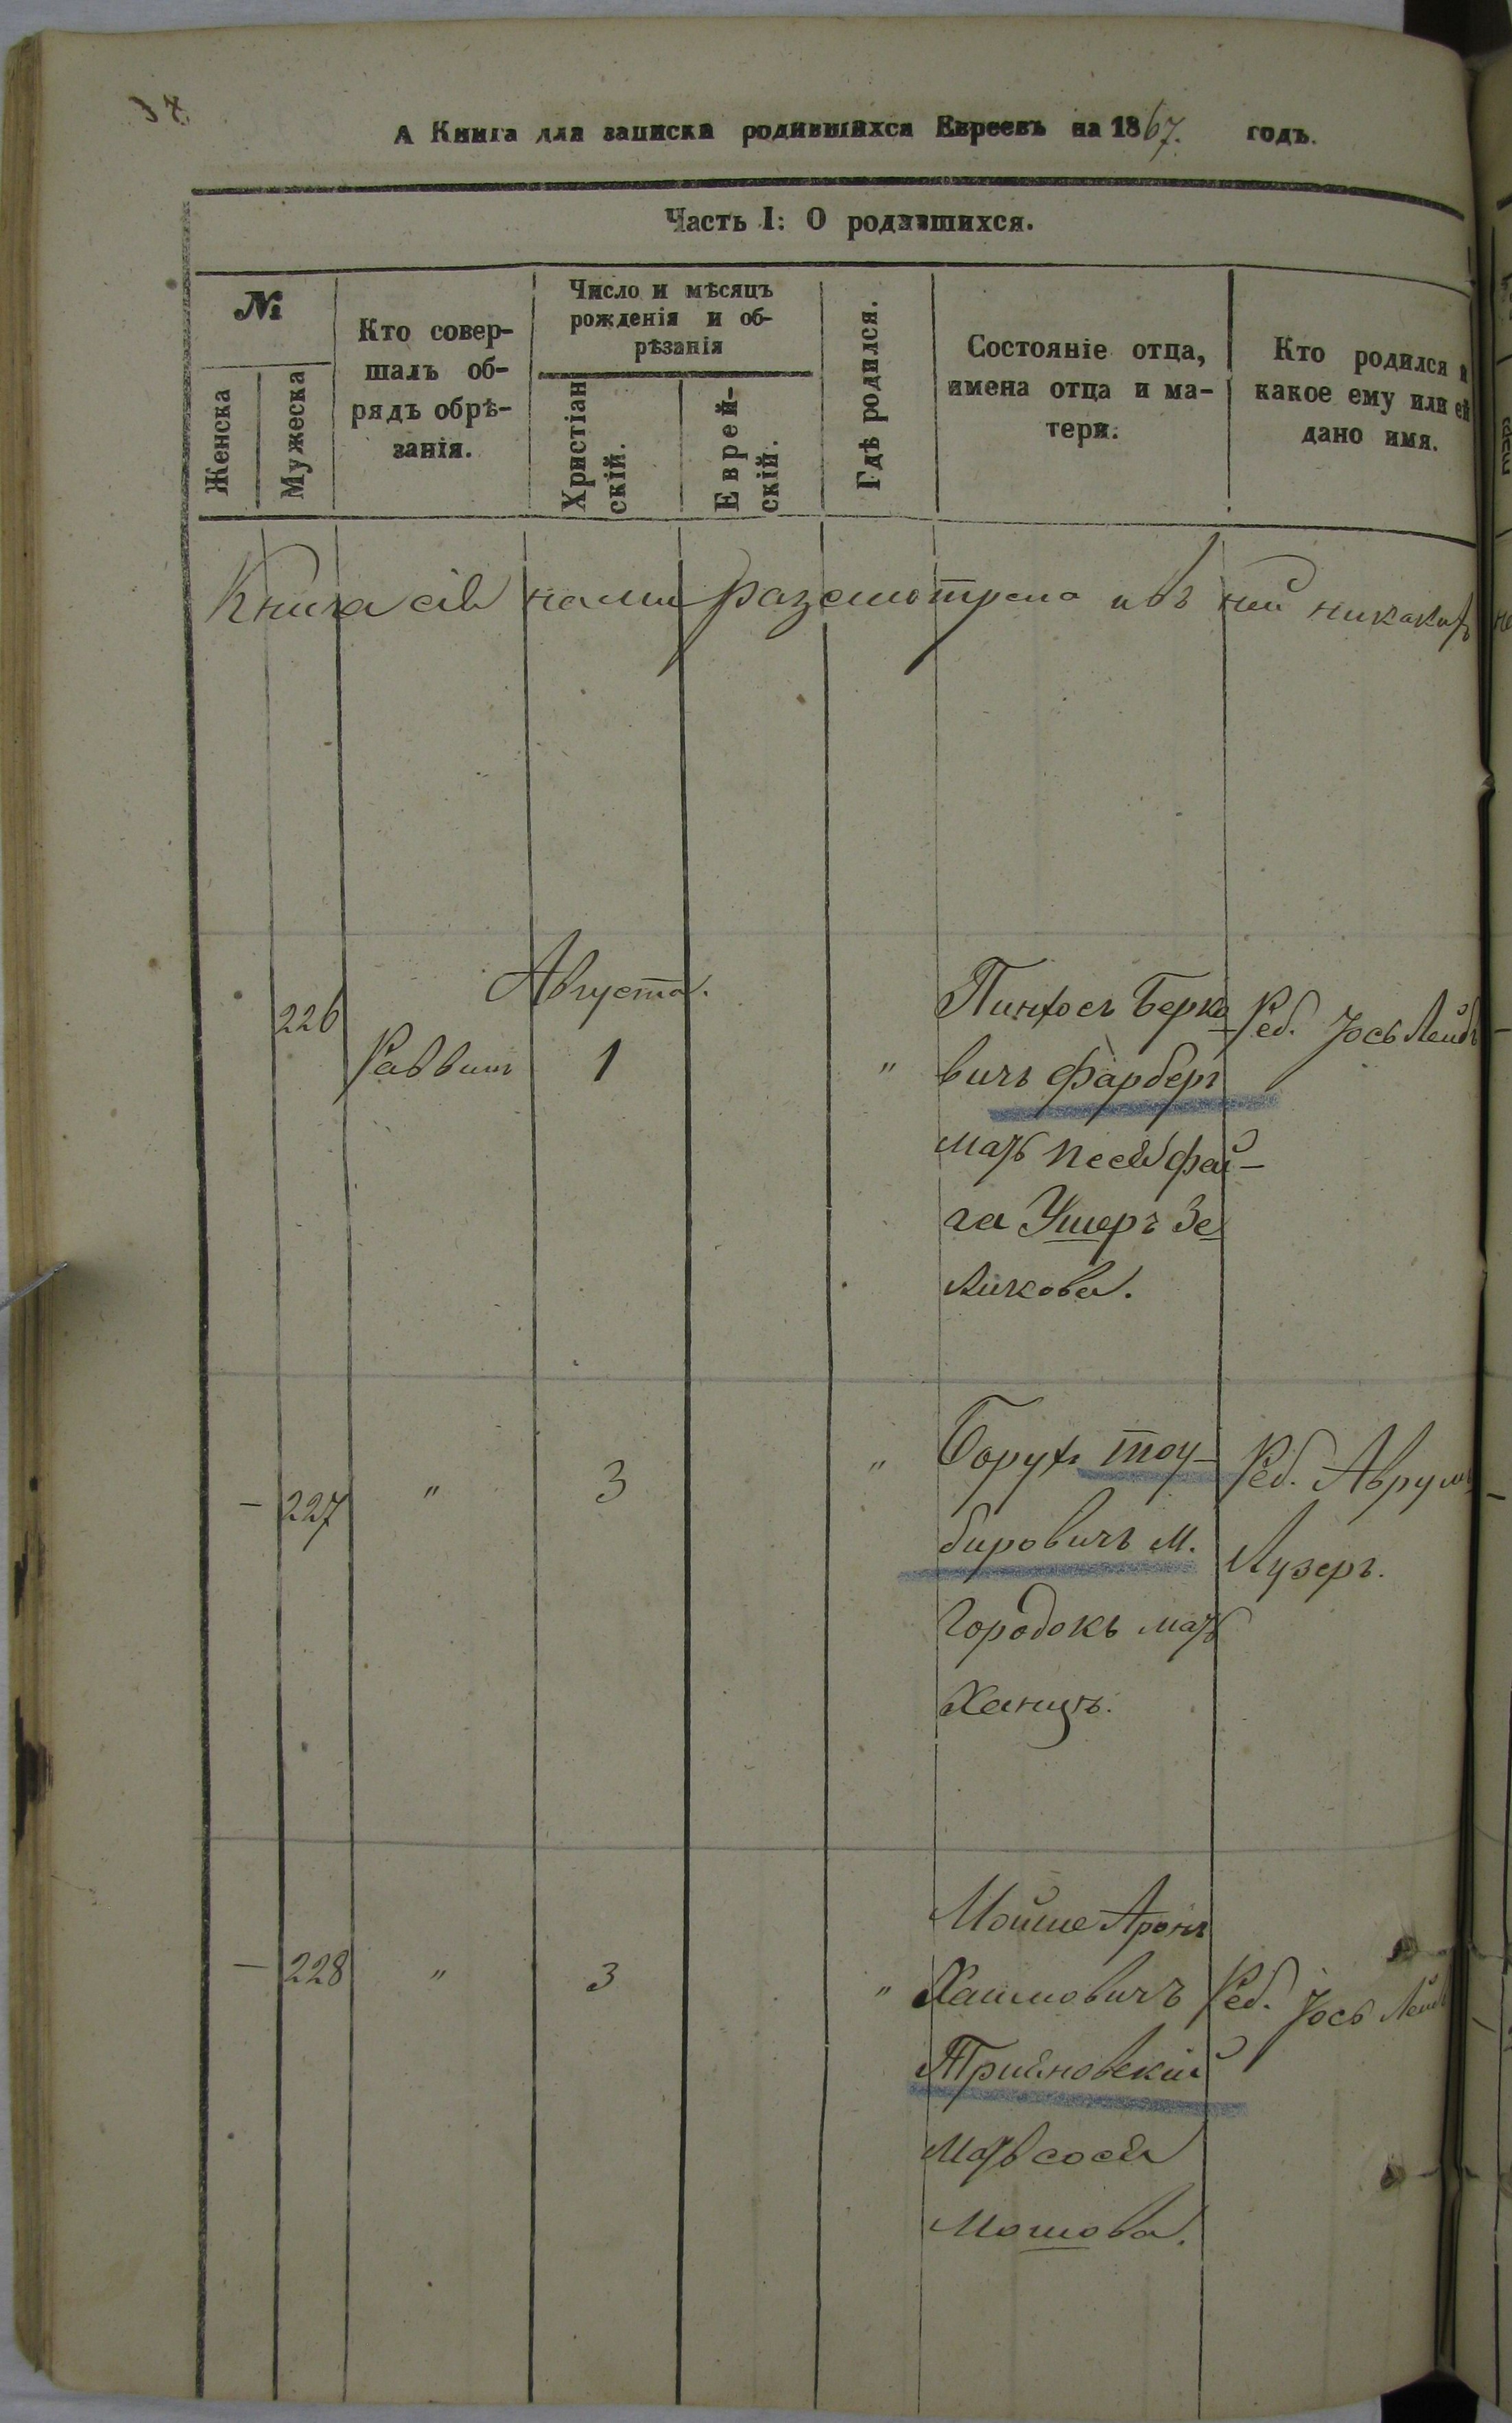 37.
А Книга для записки родившихся Евреевъ на 1867. годъ.
Часть I: О родившихся.
№
Женска
Мужеска
Кто совер-
шалъ об-
рядъ обрѣ-
занія.
Число и мѣсяцъ
рожденія и об-
рѣзанія
Христіан
скій.
Еврей-
скій.
Гдѣ родился.
Состояніе отца,
имена отца и ма-
тери.
Кто родился и
какое ему или ей
дано имя.
Книга сія нами разсмотрена и въ ней никакихъ
Августа.
226
Раввинъ
1
"
Пинхосъ Берко
вичъ Фарберъ
мать Песя Фей-
га Ушеръ Зе
ликова.
Реб. Іось Лейбъ
–
227
"
3
"
Борухъ Тоу-
бировичъ м.
Городокъ мать
Реб. Аврумъ
Лузеръ.
–
228
"
3
"
Мойше Аронъ
Хаимовичъ
мать Сося
Мошова.
Реб. Іось Лейбъ